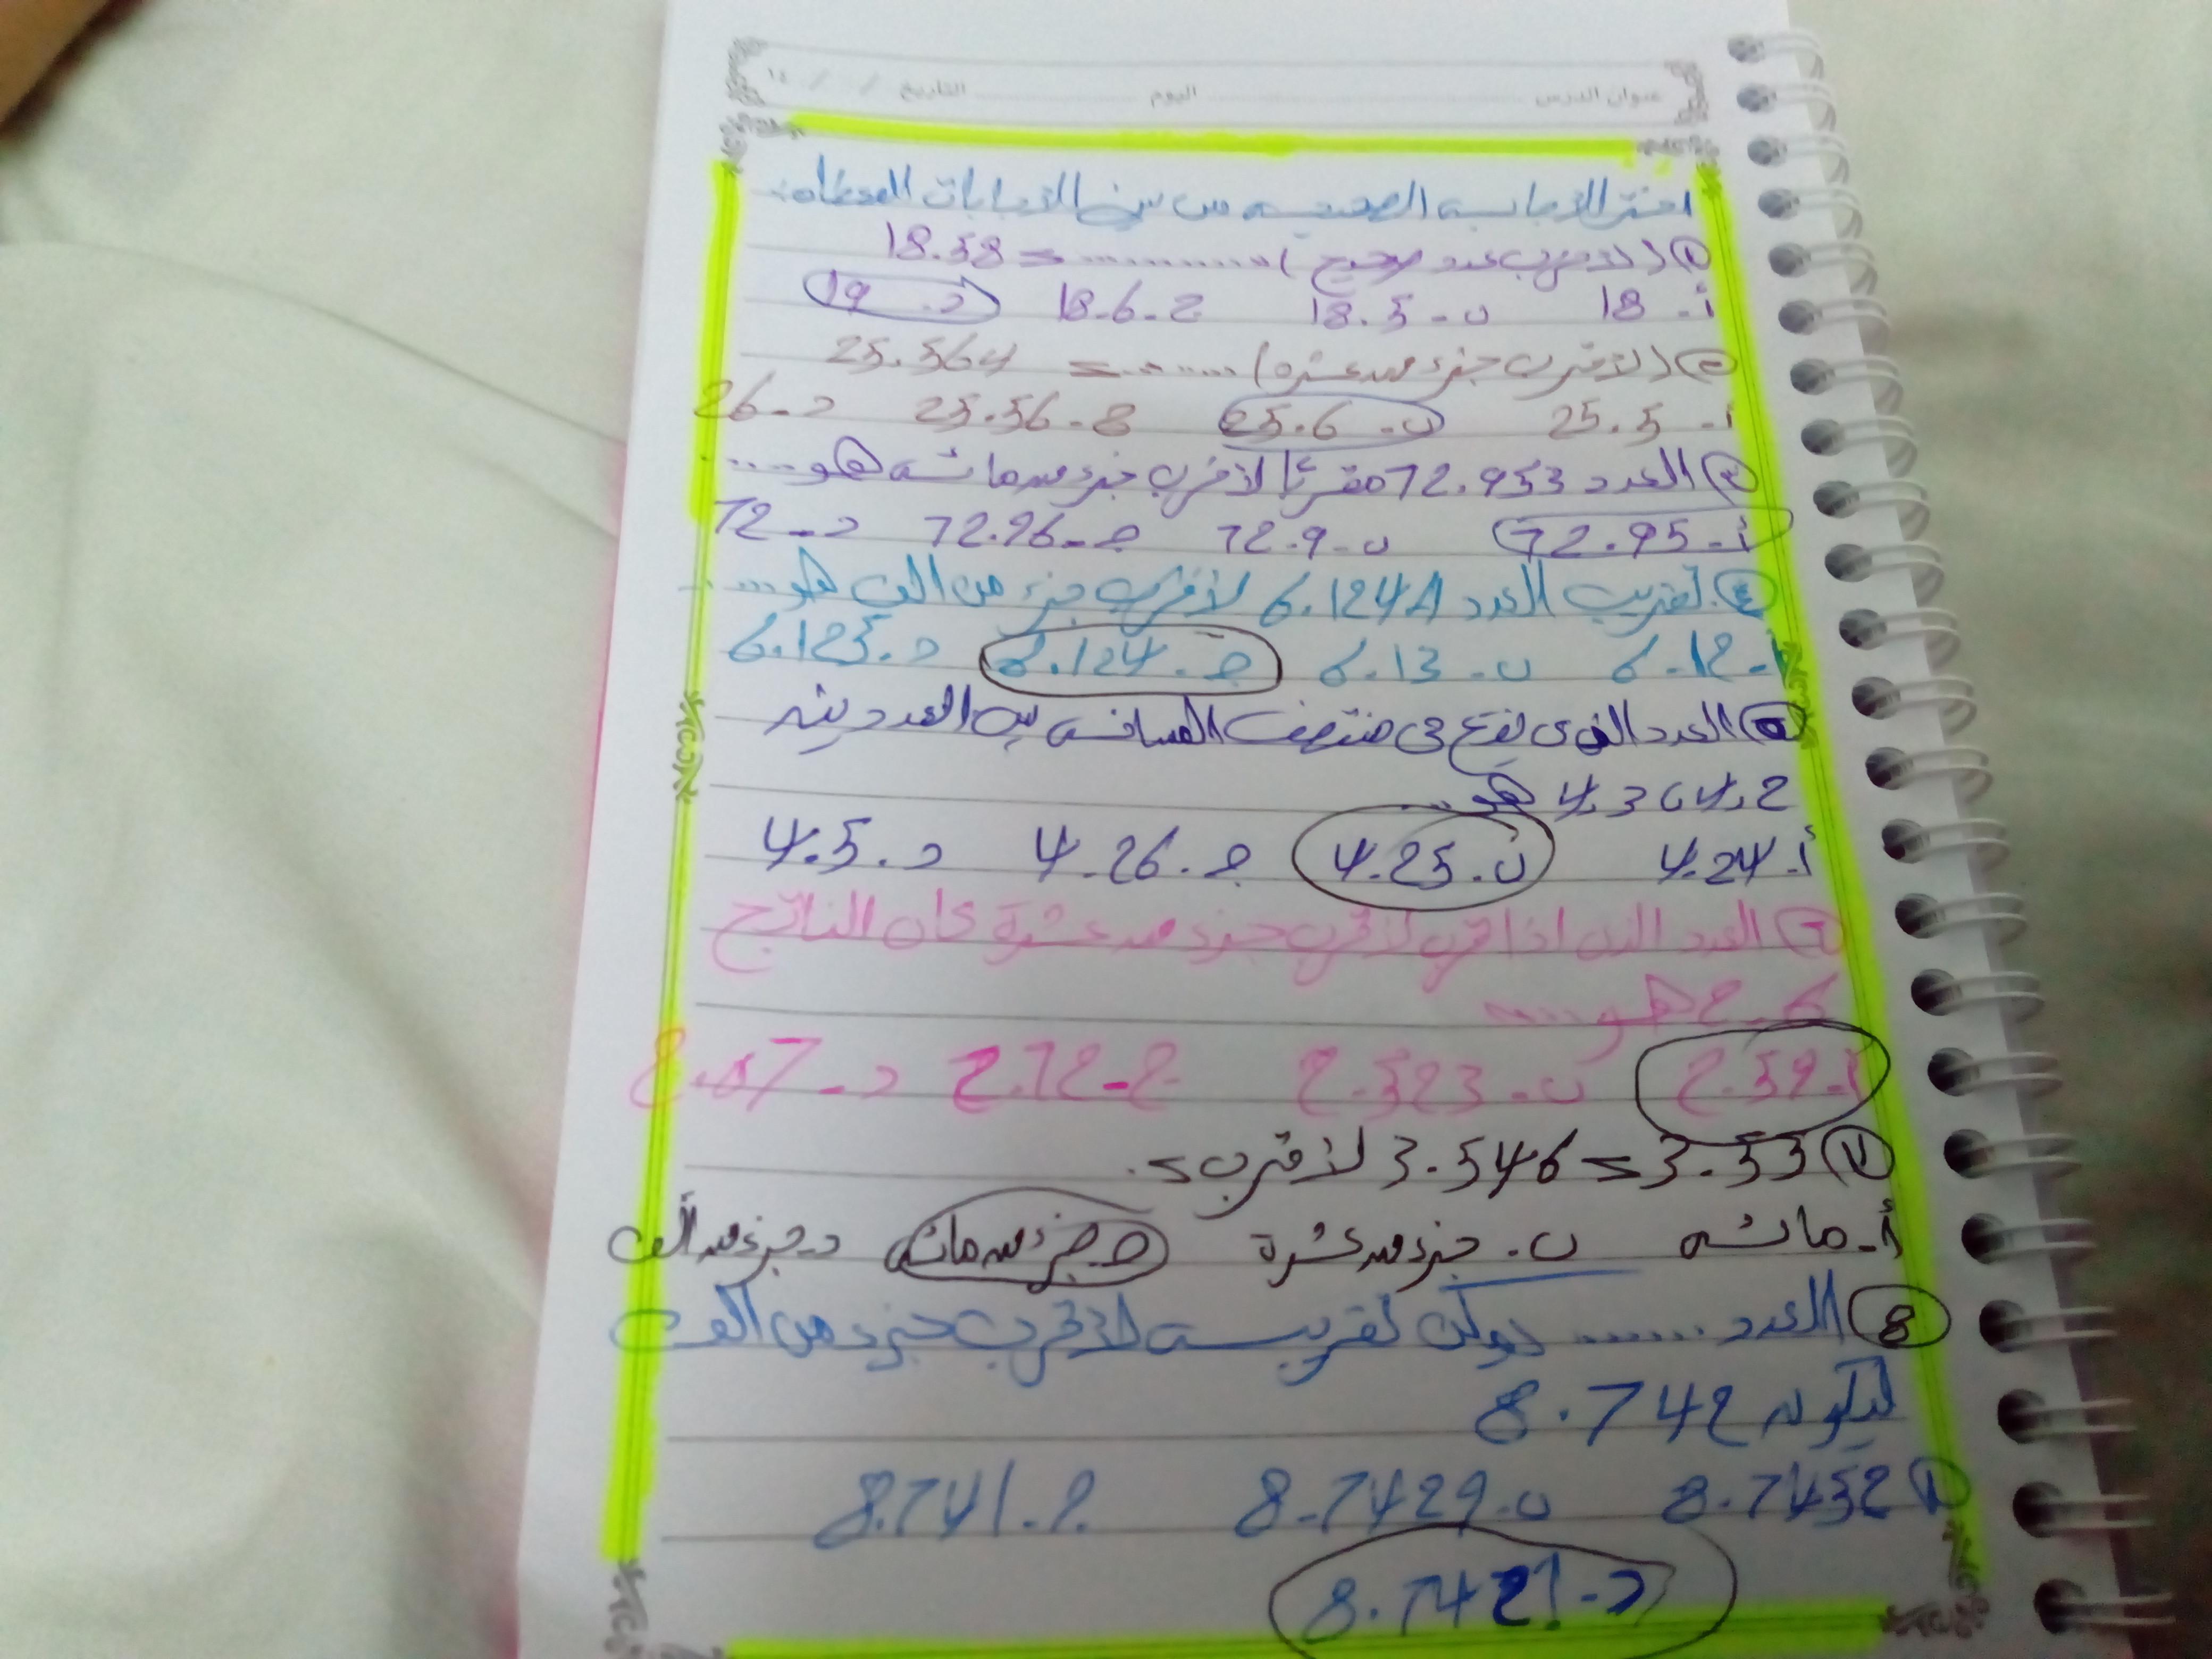 عنوان الدرس اليوم التاريخ / / ١٤
اختر الإجابه الصحيحه من بين الإجابات المعطاه:
١) (لأقرب عدد صحيح) ............ ≈ 18.58
أ- 18 ب- 18.5 ج- 18.6 د- 19
٢) (لأقرب جزء من عشره) ....... ≈ 25.564
أ- 25.5 ب- 25.6 ج- 25.56 د- 26
٣) العدد 72.953 مقربًا لأقرب جزء من مائه هو ....
أ- 72.95 ب- 72.9 ج- 72.96 د- 72
٤) تقريب العدد 6.1241 لأقرب جزء من الف هو ....
أ- 6.12 ب- 6.13 ج- 6.124 د- 6.125
٥) العدد الذى يقع فى منتصف المسافه بين العددين
4.2 ، 4.3 هو ...
أ- 4.24 ب- 4.25 ج- 4.26 د- 4.5
٦) العدد الذى اذا قرب لأقرب جزء من عشرة كان الناتج
2.6 هو ....
أ- 2.59 ب- 2.523 ج- 2.72 د- 2.67
٧) 3.546 ≈ 3.55 لأقرب
أ- مائه ب- جزء من عشرة ج- جزء من مائه د- جزء من ألف
8) العدد ....... يمكن تقريبه لأقرب جزء من الف
ليكون 8.742
أ 8.7432 ب- 8.7429 ج- 8.741
د- 8.7421